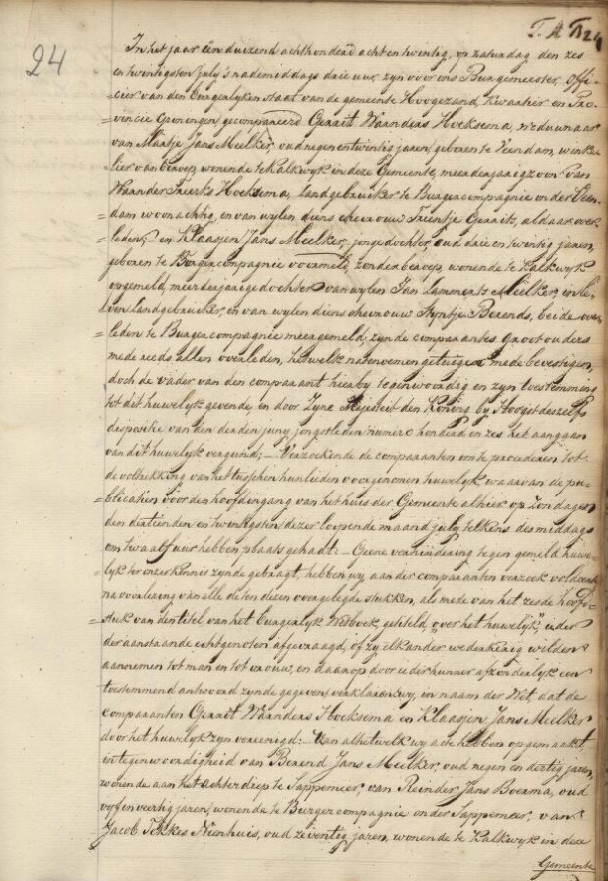 T. A. N 24
24
In het jaar een duizend achthonderd acht en twintig, op zaturdag den zes
en twintigsten July 's nademiddags drie uur, zyn voor ons Burgemeester, offi-
=cier van den Burgerlyken staat van de gemeente Hoogezand, kwartier en Pro
=vincie Groningen, gecompareerd Gerrit Waanders Hoeksema, weduwnaar
van Maatje Jans Meelker, oud negen en twintig jaren, geboren te Veendam, winke
lier van beroep, wonende te Kalkwyk in deze Gemeente, meerderjarige zoon van
Waander Freerks Hoeksema, landgebruiker te Burgercompagnie onder Veen
=dam woonachtig, en van wylen diens ehevrouw Trientje Gerrits, aldaar over
=leden; en Klaasjen Jans Meelker, jonge dochter, oud drie en twintig jaren,
geboren te Burgercompagnie voormeld, zonder beroep, wonende te Kalkwyk
opgemeld, meerderjarige dochter van wylen Jan Lammerts Meelker, in le
ven landgebruiker, en van wylen diens ehevrouw Hyntje Berends, beide over
=leden te Burgercompagnie meergemeld, zynde comparantes Groot ouders
mede reeds allen overleden, hetwelk natenoemen getuigen mede bevestigen,
doch de vader van den comparant hierby tegenwoordig en zyn toestemming
tot dit huwelyk gevende, en door Zyne Majesteit den Koning by Hoogstdeszelfs
dispositie van den derden juny jongstleden numero honderd en zes het aangaan
van dit huwelyk vergund; – Verzoekende de comparanten om te procederen tot
de voltrekking van het tusschen hun lieden voorgenomen huwelyk waarvan de pu
=blicatien voor den hoofdingang van het huis der Gemeente alhier op Zondagen
den dertienden en twintigsten dezer loopende maand july, telkens des middags
om twaalf uur hebben plaats gehad: – Geene verhindering tegen gemeld huwe-
=lyk ter onzer kennis zynde gebragt, hebben wy aan der comparanten verzoek voldoende
na voorlezing van alle de ten dezen voorgelegde stukken, als mede van het zesde hoofd-
=stuk van den titel van het Burgerlyk Wetboek, getiteld, "over het huwelyk", ieder
der aanstaande echtgenoten afgevraagd, of zy elkander wederkeerig wilden
aannemen tot man en tot vrouw, en daarop door ieder hunner afzonderlyk een
toestemmend antwoord zynde gegeven, verklaren wy, in naam der Wet, dat de
comparanten Gerrit Waanders Hoeksema en Klaasjen Jans Meelker
door het huwelyk zyn vereenigd: – Van al hetwelk wy acte hebben opgemaakt
in tegenwoordigheid van Berend Jans Meelker, oud negen en dertig jaren,
wonende aan het achterdiep te Sappemeer, van Reinder Jans Boerma, oud
vyf en veertig jaren, wonende te Burgercompagnie onder Sappemeer, van
Jacob Tekkes Nienhuis, oud zeventig jaren, wonende te Kalkwyk in deze
Gemeente